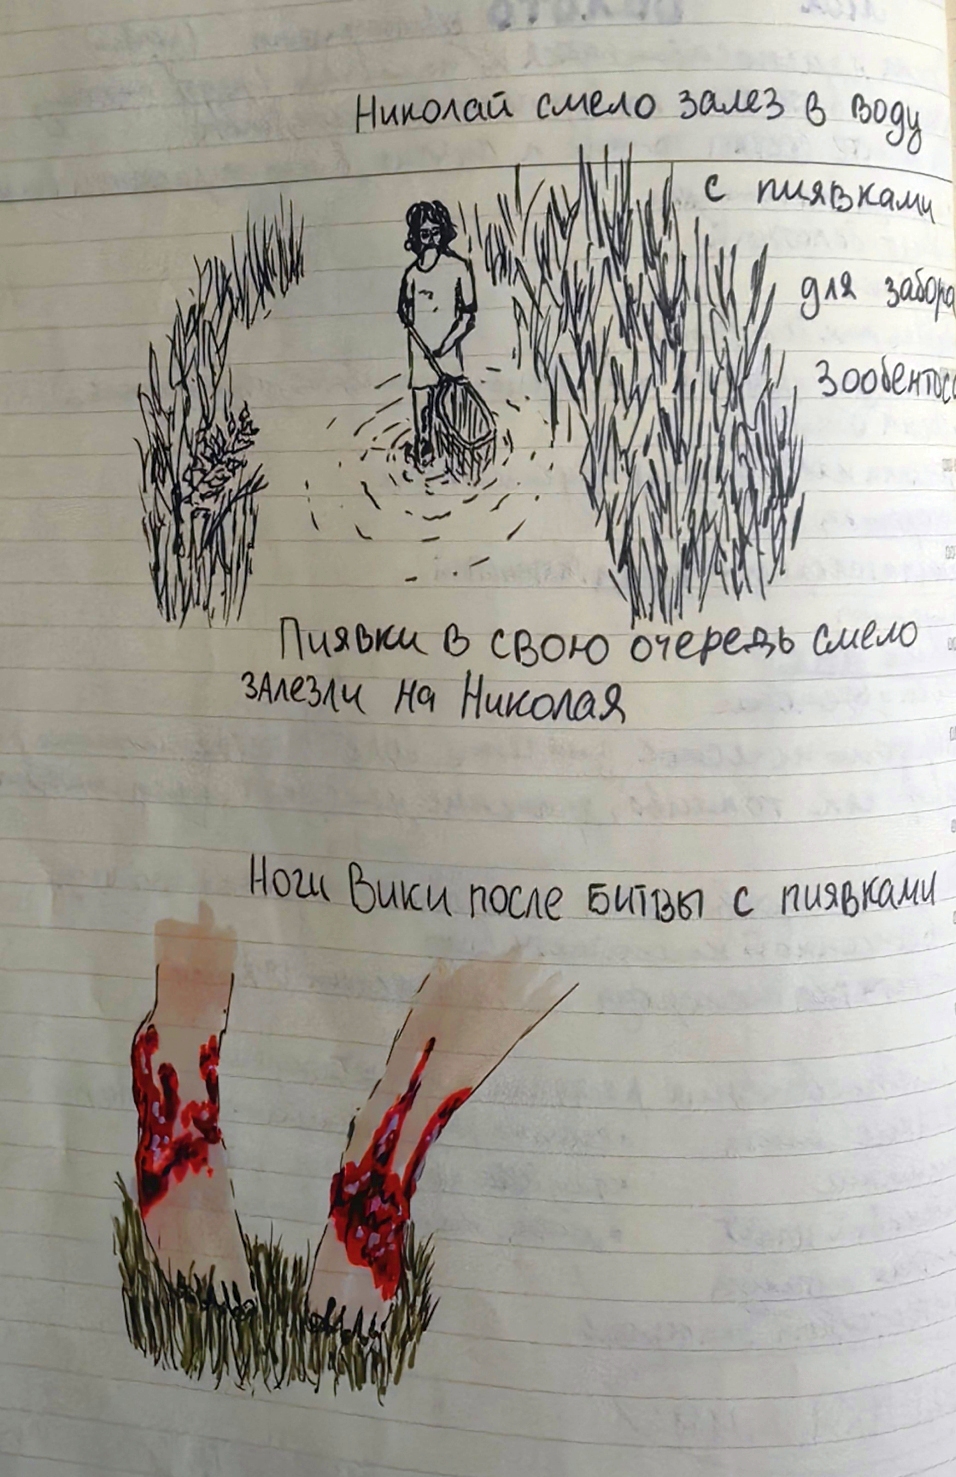 Николай смело залез в воду
с пиявками
для забора
зообентоса
Пиявки в свою очередь смело
залезли на Николая
Ноги Вики после битвы с пиявками